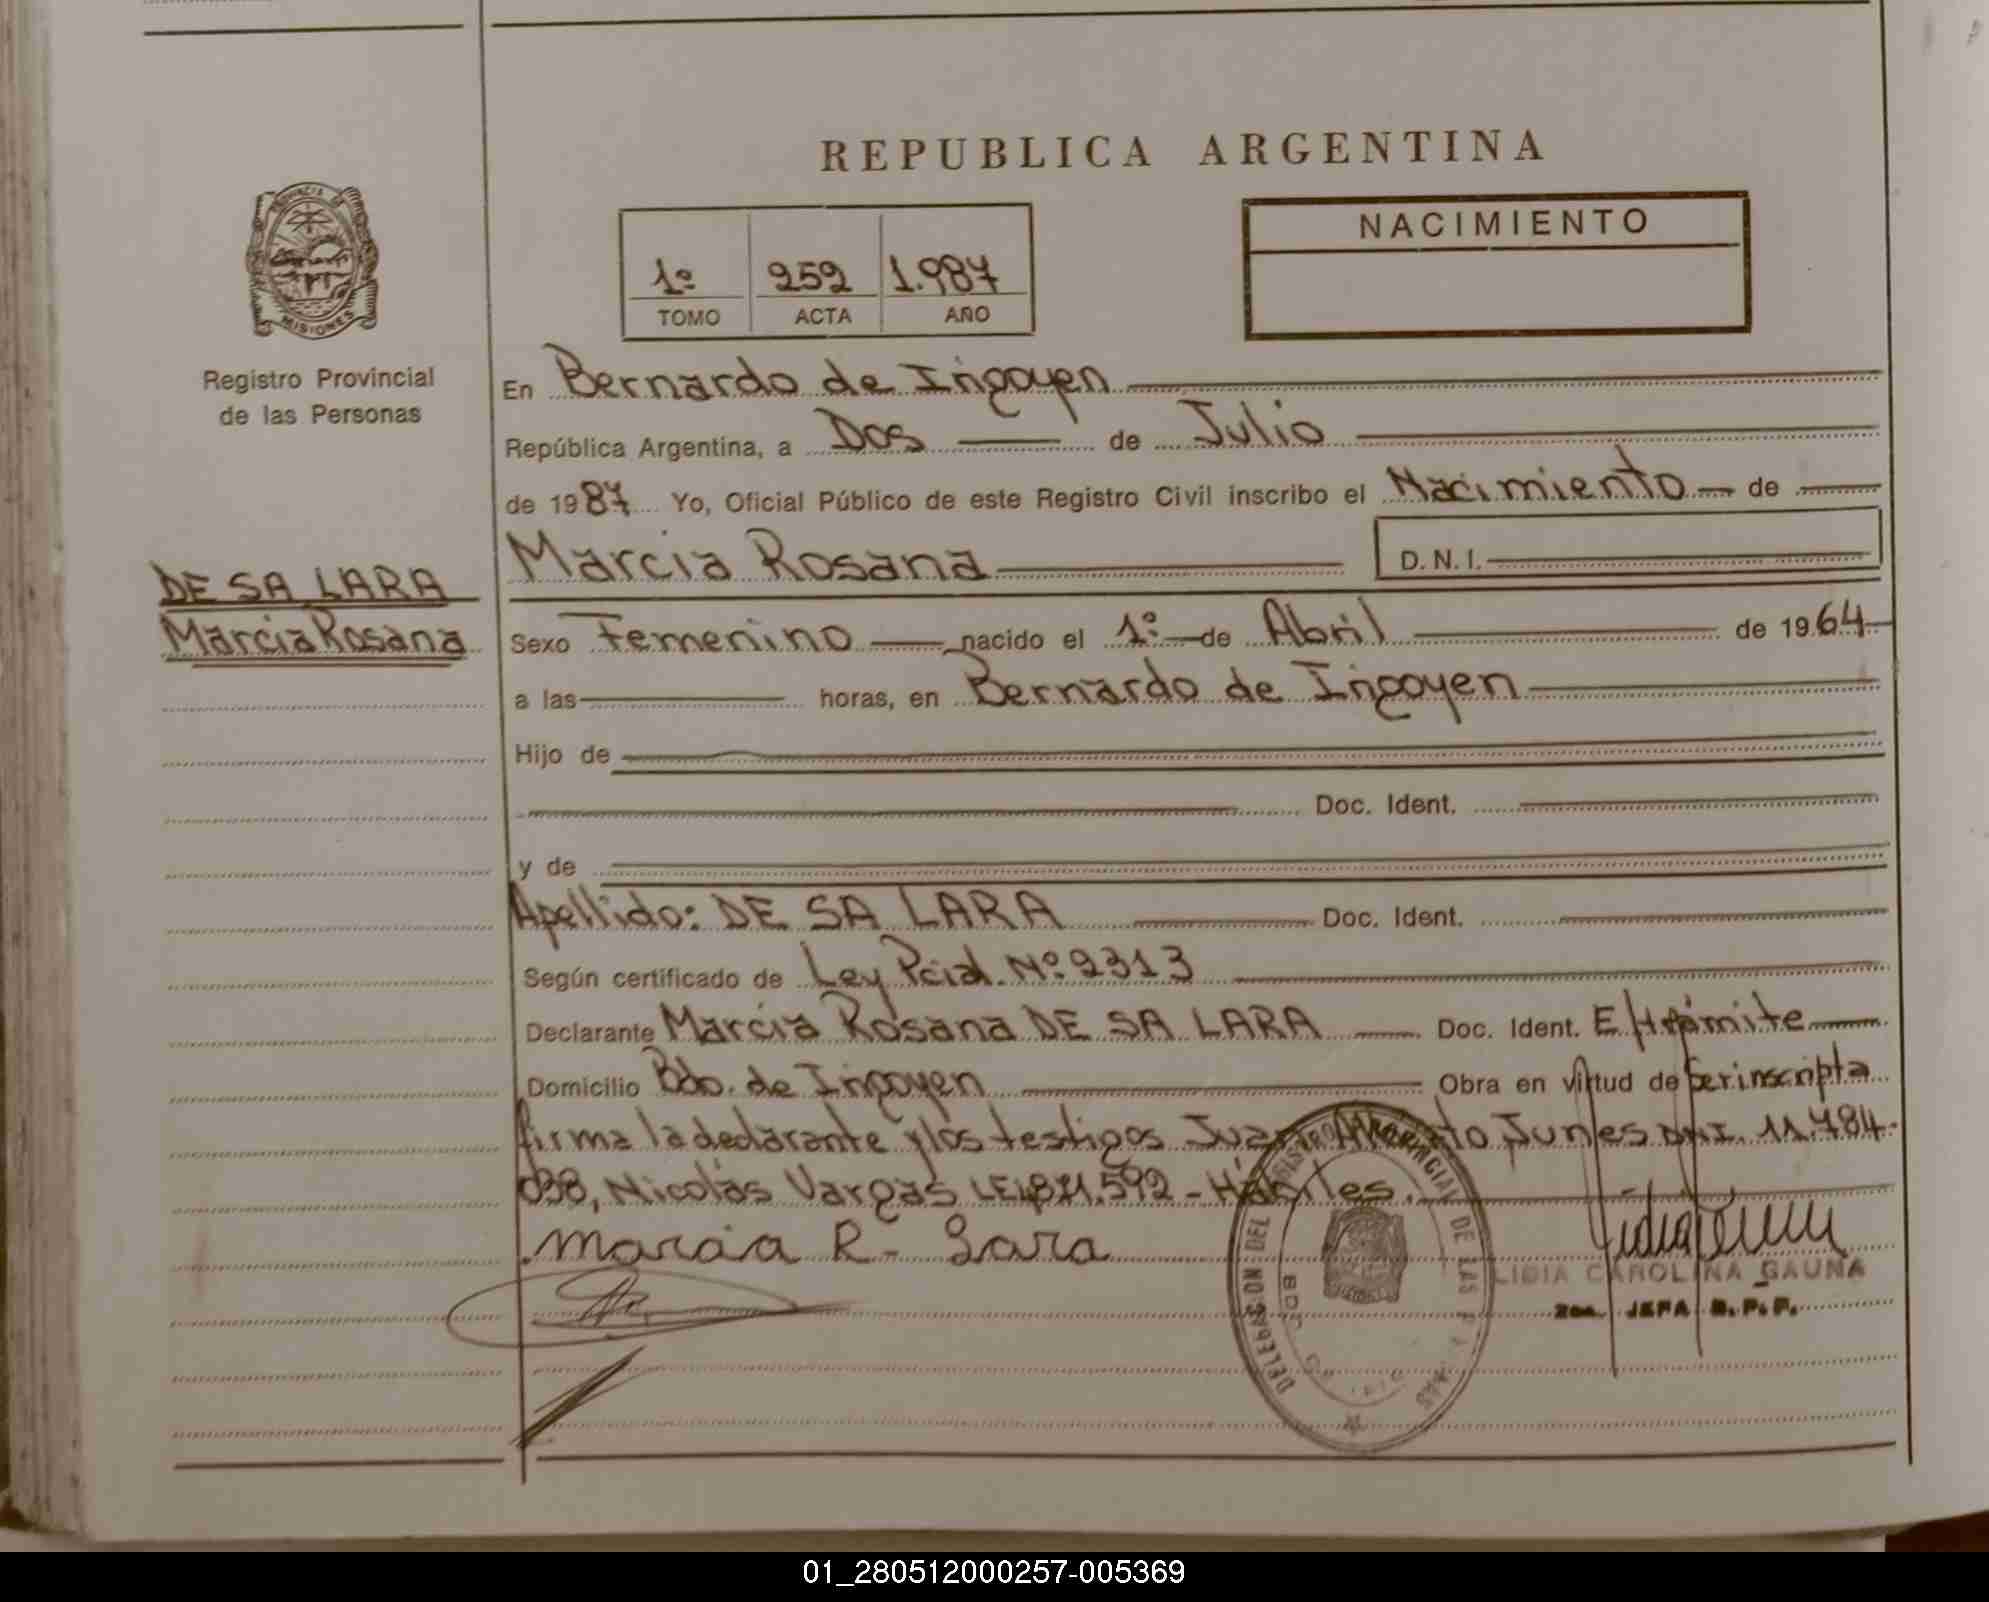 REPUBLICA ARGENTINA
PROVINCIA DE MISIONES
Registro Provincial
de las Personas
1º 252 1.987
TOMO ACTA AÑO
NACIMIENTO
En Bernardo de Irigoyen
República Argentina, a Dos de Julio
de 1987 Yo, Oficial Público de este Registro Civil inscribo el Nacimiento de
Marcia Rosana D. N. I.
DE SA LARA
Marcia Rosana
Sexo Femenino nacido el 1º de Abril de 1964
a las horas, en Bernardo de Irigoyen
Hijo de
Doc. Ident.
y de
Apellido: DE SA LARA Doc. Ident.
Según certificado de Ley Pcial. Nº 2313
Declarante Marcia Rosana DE SA LARA Doc. Ident. E/trámite
Domicilio Bdo. de Irigoyen Obra en virtud de Ser inscripta
firma la declarante y los testigos Juan Junes DNI. 11.784.
038, Nicolás Vargas LE - Hábiles.
Marcia R. Lara
DELEGACION DEL REGISTRO PROVINCIAL DE LAS
LIDIA CAROLINA GAUNA
JEFA R. P. P.
01_280512000257-005369